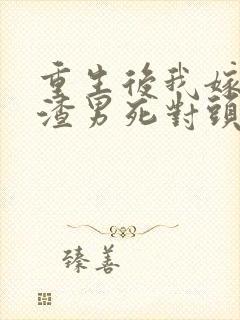 重生後我嫁
渣男死對頭
臻善